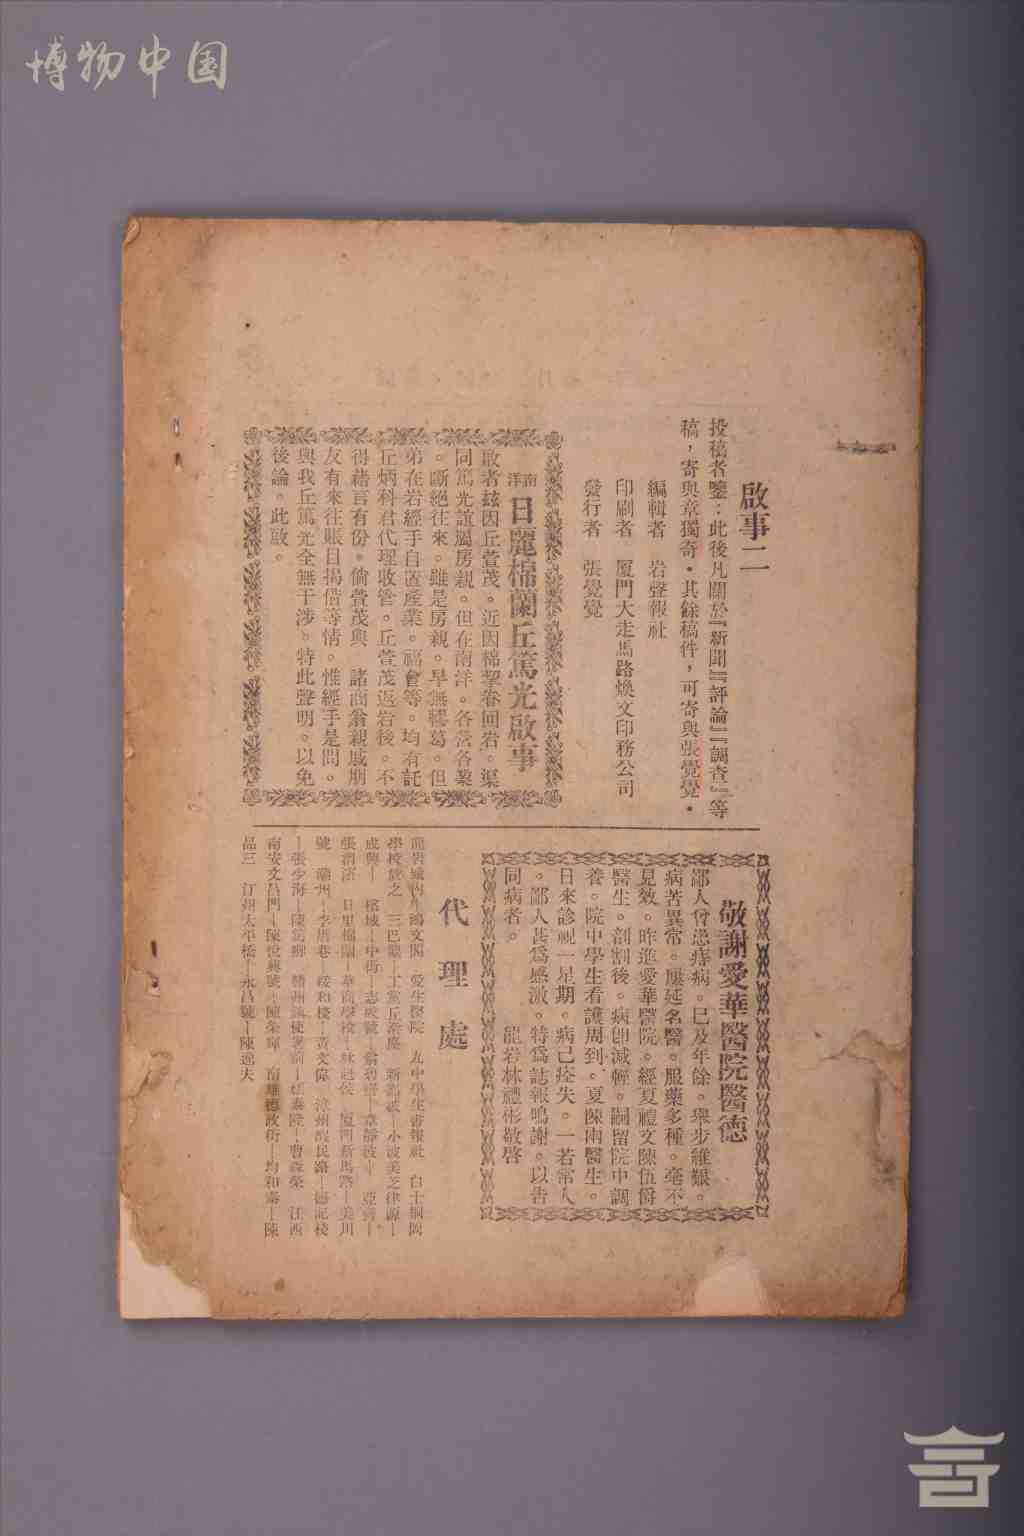 博物中国
啟事二
投稿者鑒：此後凡關於『新聞』『評論』『調查』等
稿，寄與章獨奇・其餘稿件，可寄與張覺覺・
編輯者　岩聲報社
印刷者　厦門大走馬路煥文印務公司
發行者　張覺覺
南洋日麗棉蘭丘篤光啟事
啟者玆因丘萱茂。近因棉挈眷回岩。渠
同篤光誼屬房親。但在南洋。各營各業
。斷絕往來。雖是房親。早無轇葛。但
弟在岩經手自置產業。福會等。均有託
丘炳科君代理收管。丘萱茂返岩後。不
得藉言有份。倘萱茂與　諸商翁親戚朋
友有來往賬目揭借等情。惟經手是問。
與我丘篤光全無干涉。特此聲明。以免
後論。此啟。
敬謝愛華醫院醫德
鄙人曾患痔病。已及年餘。舉步維艱。
病苦異常。屢延名醫。服藥多種。毫不
見效。昨進愛華醫院。經夏禮文陳伍爵
醫生。剖割後。病卽減輕。嗣留院中調
養。院中學生看護周到。夏陳兩醫生。
日來診視一星期。病已痊失。一若常人
。鄙人甚爲感激。特爲誌報鳴謝。以告
同病者。　龍岩林禮彬敬啓
代理處
龍岩城內　文閣　愛生醫院　九中學生書報社　白土桐岡
學校　之　三巴壟―丁黨丘　慶　　　―小波美芝律源―
成興―　檳城―中街―志成號　　　亞齊―
張　　日里棉蘭―華商學校―林　　厦門新馬路―美川
號　潮州―李厝巷　綏和棧―黃文偉　漳州　民路―德記棧
―張少海―陳　鄉　贛州鎮使署前―　泰隆―曹森榮　江西
南安文昌門―陳悅興號―陳　　南雄德政街―均和泰―陳
品三　汀州太平橋―永昌號―陳逸夫